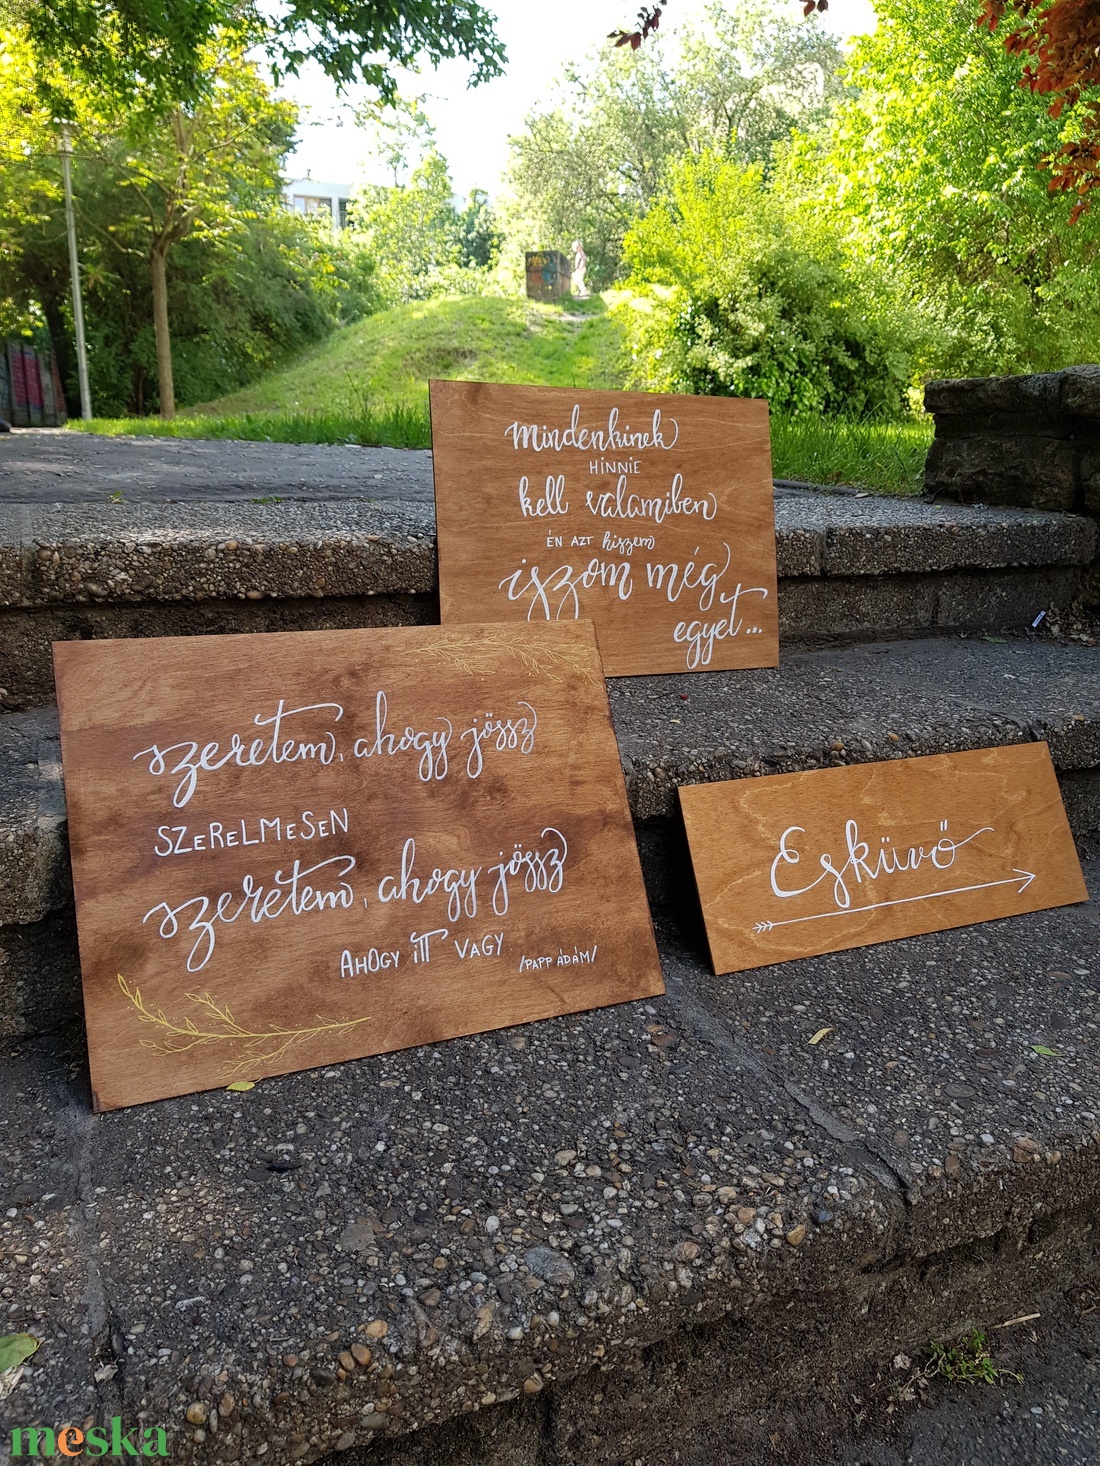 mindenkinek
HINNIE
kell valamiben
ÉN AZT hiszem
iszom még
egyet...
szeretem, ahogy jössz
SZERELMESEN
szeretem, ahogy jössz
AHOGY ITT VAGY
/PAPP ÁDÁM/
Esküvő
meska